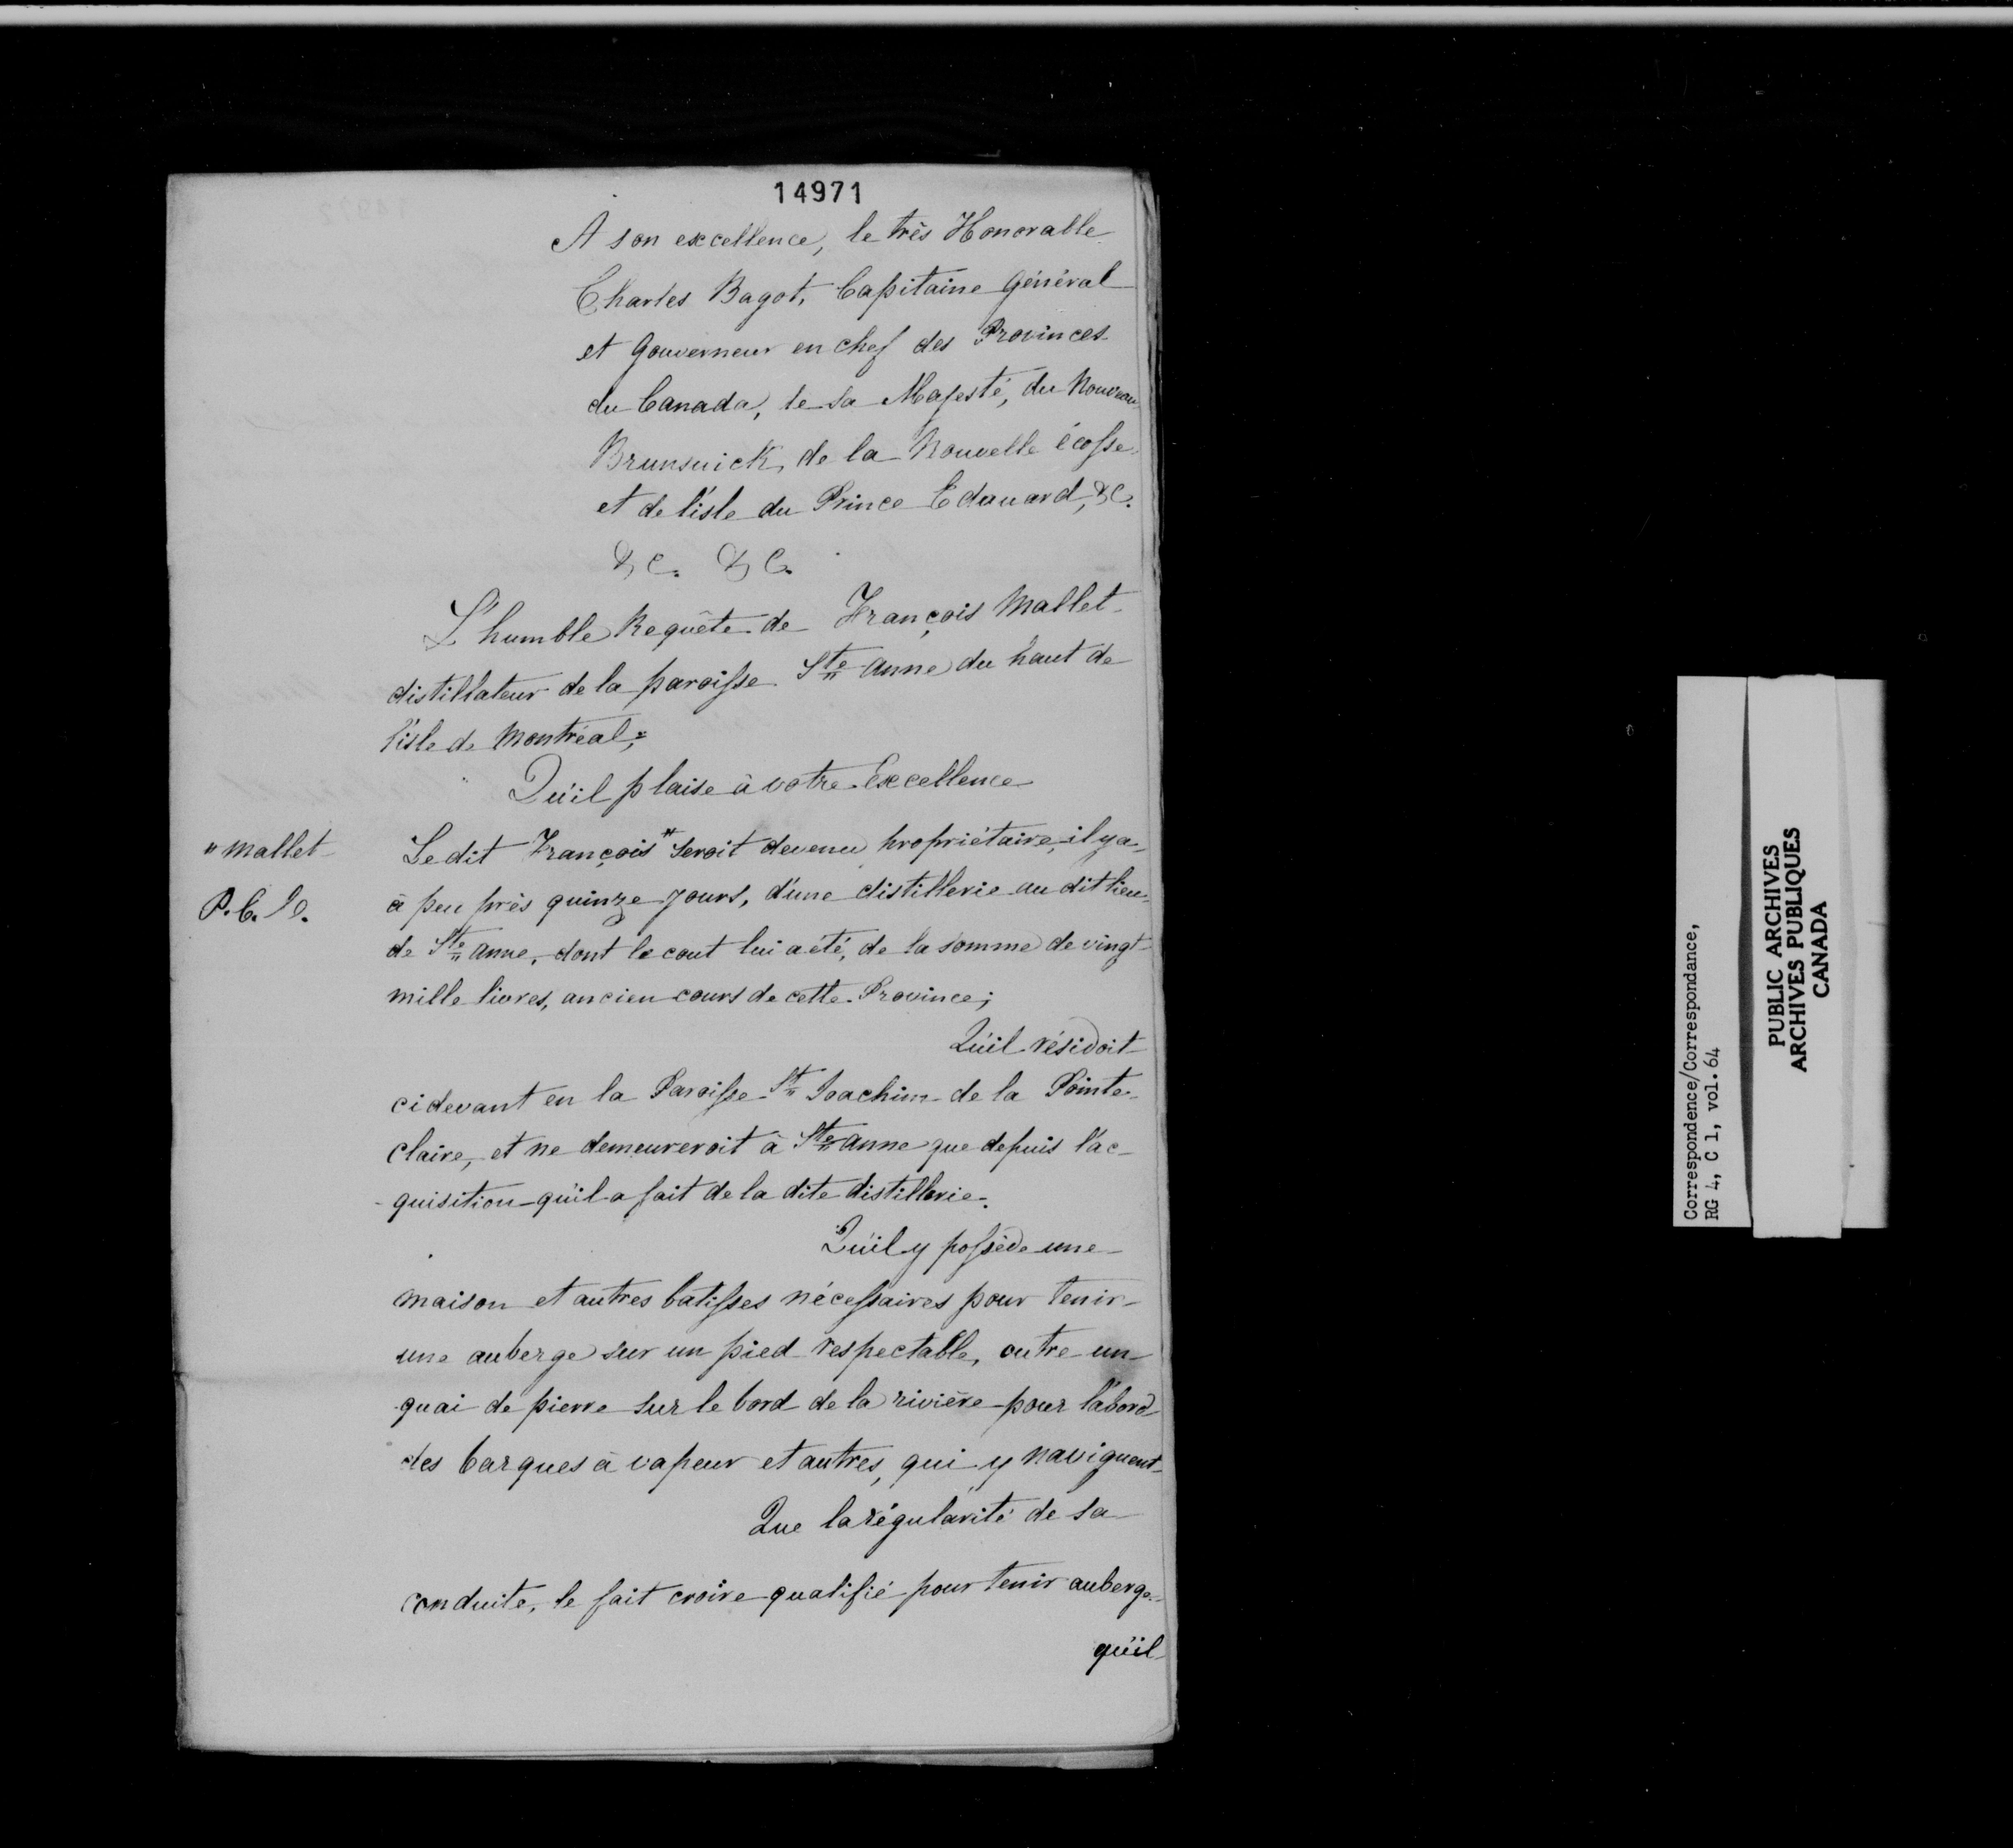 14971
A son excellence, le très Honorable
Charles Bagot, Capitaine Général
et Gouverneur en chef des Provinces
du Canada, le sa Majesté, du Nouveau
Brunswick, de la Nouvelle écosse
et de l'isle du Prince Edouard, &c.
&c. &c.
L'humble Requête de François Mallet
distillateur de la paroisse Ste Anne du haut de
l'isle de Montréal;
Qu'il plaise à votre Excellence
" Mallet
Le dit François " seroit devenu propriétaire, il y a
P.C.
à peu près quinze jours, d'une distillerie au dit lieu
de Ste Anne, dont le cout lui a été, de la somme de vingt
mille livres, ancien cours de cette Province;
Qu'il résidoit
cidevant en la Paroisse St Joachim de la Pointe
Claire, et ne demeureroit à Ste Anne que depuis l'ac-
-quisition qu'il a fait de la dite distillerie.
Qu'il y possède une
maison et autres batisses nécessaires pour tenir
une auberge sur un pied respectable, outre un
quai de pierre sur le bord de la rivière pour l'abord
des barques à vapeur et autres, qui y naviguent
Que la régularité de sa
conduite, le fait croire qualifié pour tenir auberge
qu'il
Correspondence/Correspondance,
RG 4, C 1, vol. 64
PUBLIC ARCHIVES
ARCHIVES PUBLIQUES
CANADA